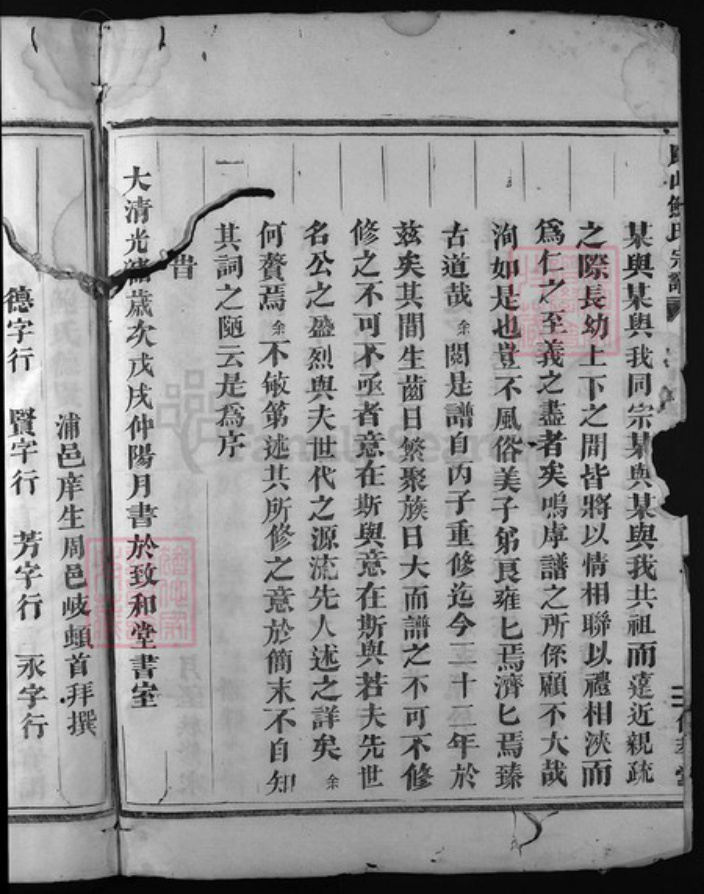 某與某與我同宗某與某與我共祖而遠近親疏
之際長幼上下之間皆將以情相聯以禮相浹而
爲仁之至義之盡者矣嗚虖譜之所係顧不大哉
洵如是也豈不風俗美子弟良雍匕焉濟匕焉臻
古道哉余閱是譜自丙子重修迄今二十二年於
兹矣其間生齒日繁聚族日大而譜之不可不修
修之不可不亟者意在斯與意在斯與若夫先世
名公之盛烈與夫世代之源流先人述之詳矣余
何贅焉余不敏第述其所修之意於簡末不自知
其詞之陋云是爲序
昔
大清光緒歲次戊戌仲陽月書於致和堂書室
浦邑庠生周邑岐頓首拜撰
德字行 賢字行 芳字行 永字行
氏宗譜